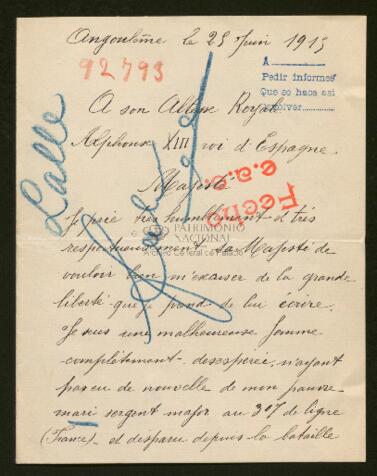 Angoulême le 25 Juin 1915
92793
A
Pedir informes
Que se hace así
A son Altesse Royale
Alphonse XIII roi d'Espagne
Lalle
Majesté
Fecho
e.a.c.
Je prie très humblement et très
respectueusement sa Majesté de
vouloir bien m'excuser de la grande
liberté que je prend de lui écrire.
Je suis une malheureuse femme
complètement désespérée, n'ayant
pas eu de nouvelle de mon pauvre
mari sergent major au 307 de ligne
(France) et disparu depuis la bataille
PATRIMONIO
NACIONAL
Archivo General de Palacio